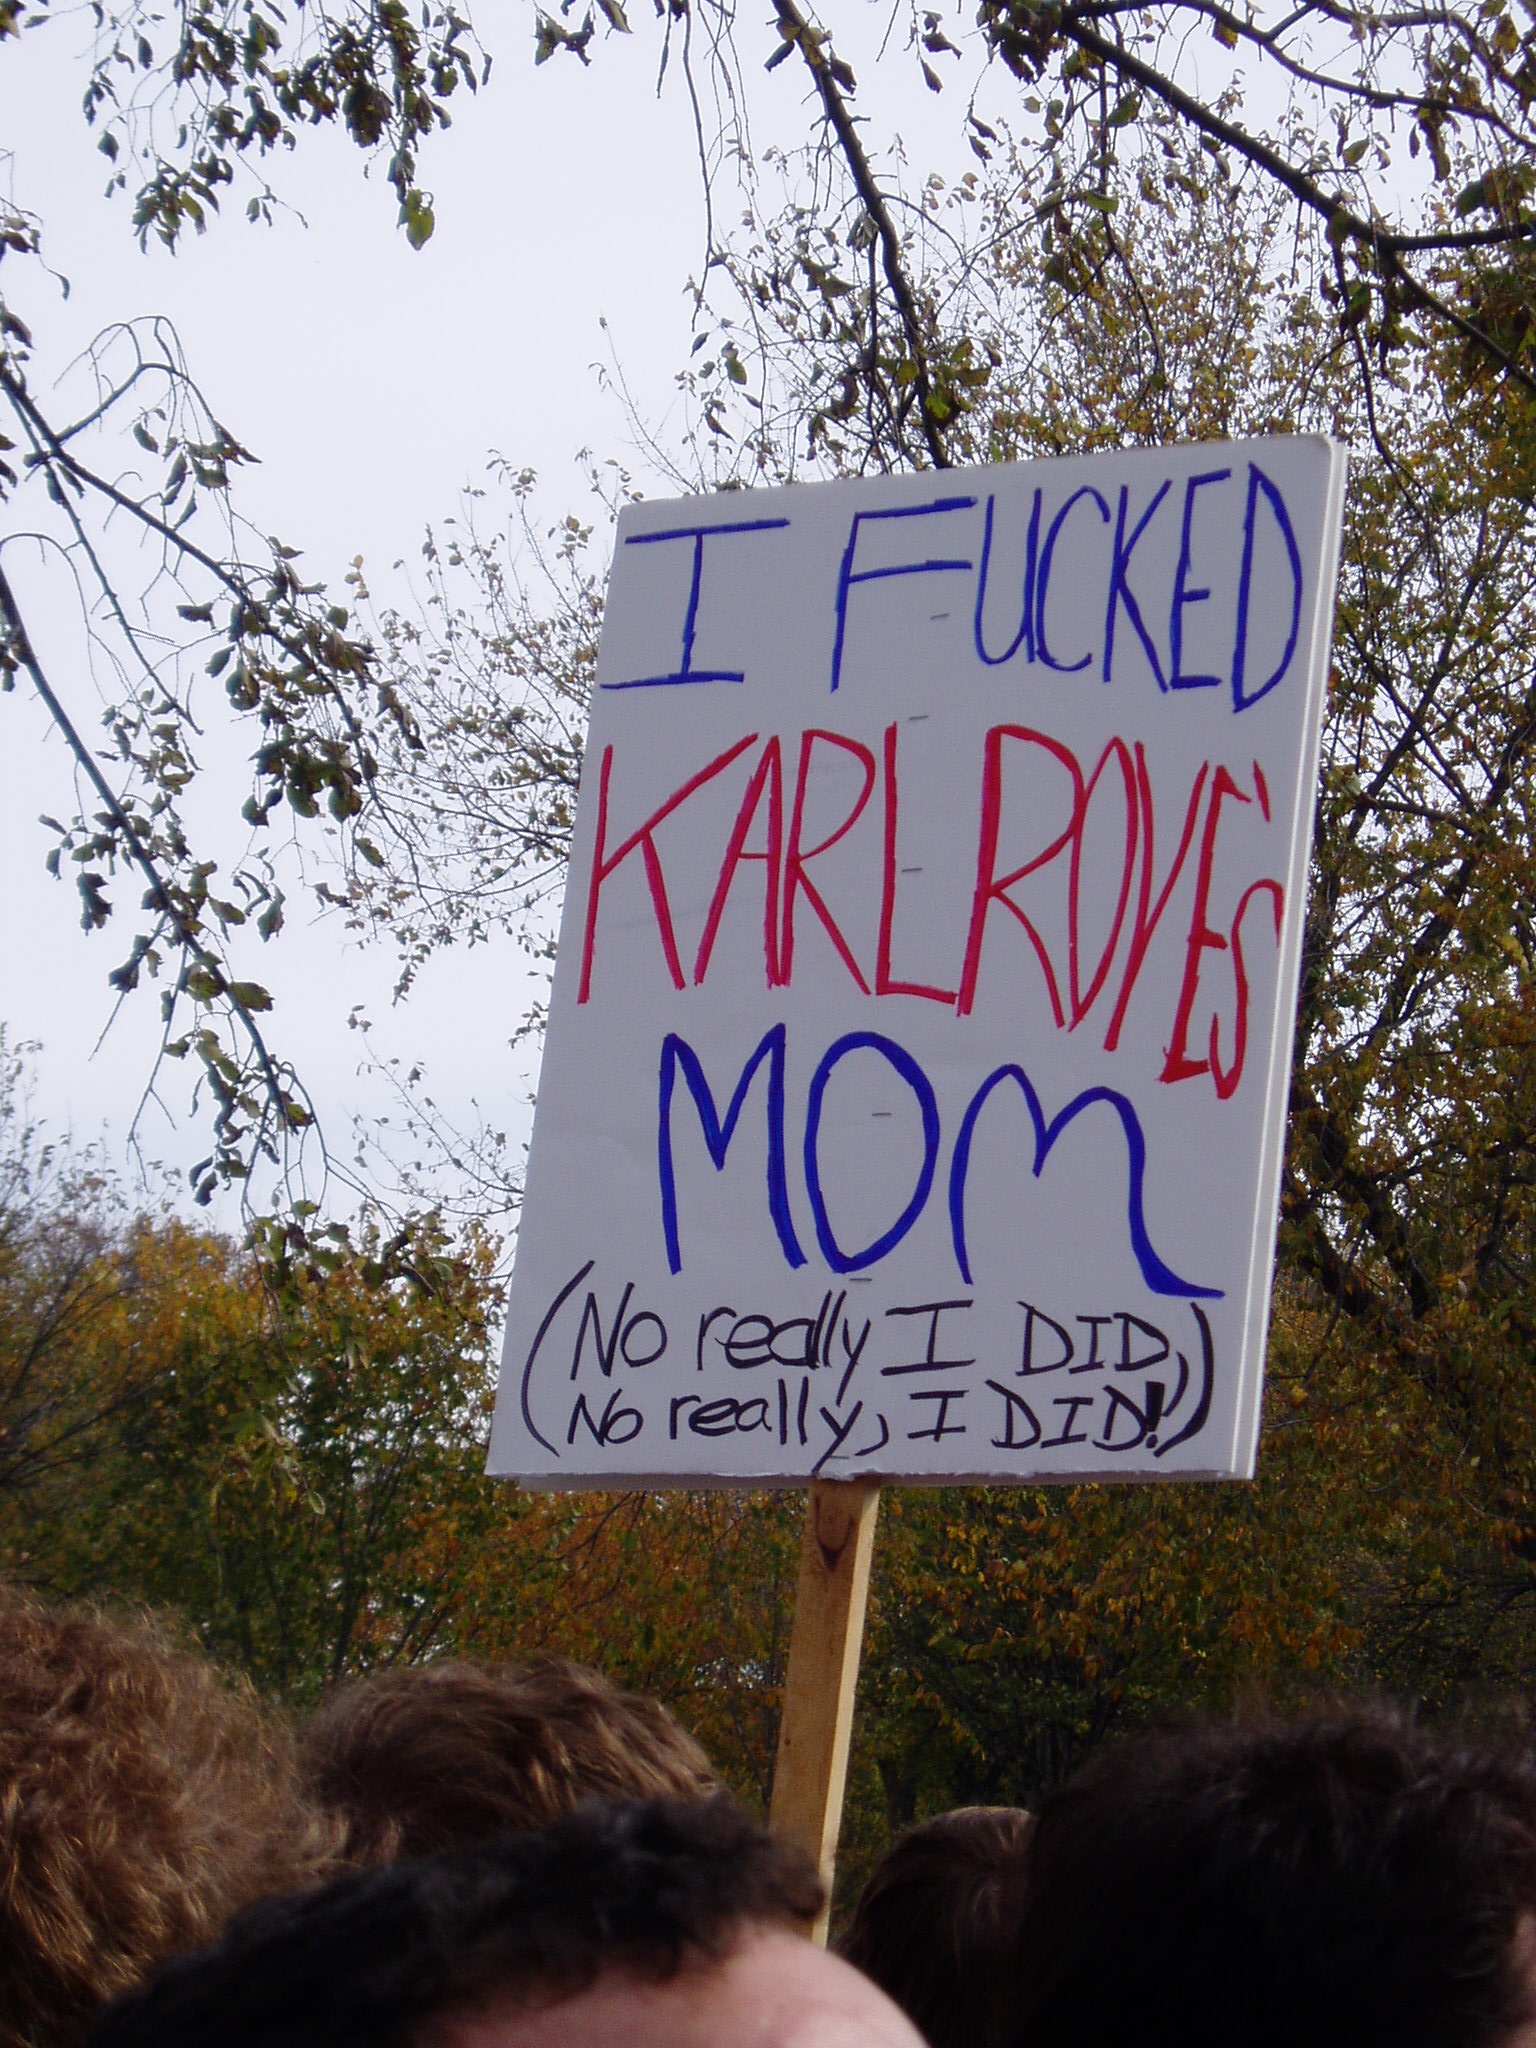 I FUCKED
KARL ROVE'S
MOM
(No really I DID,)
(No really, I DID!)